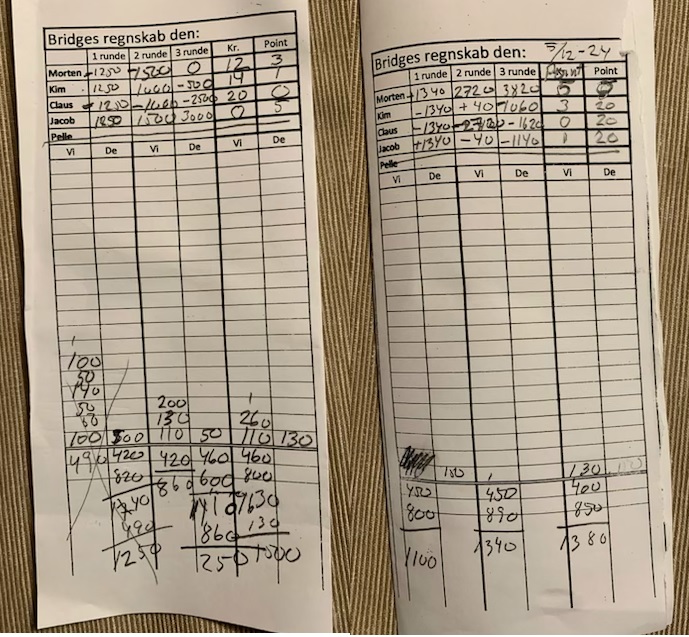 Bridges regnskab den:
1 runde 2 runde 3 runde Kr. Point
Morten -1250 -1500 0 12 3
Kim 1250 1000 -500 14 1
Claus -1250 -1000 -2500 20 0
Jacob 1250 1500 3000 0 5
Pelle
Vi De Vi De Vi De
100
50
140
50 200
60 130 260
100 500 110 50 110 130
490 420 420 460 460
820 860 600 800
1240 1630
490 860 130
1250 250 1500
Bridges regnskab den: 5/12-24
1 runde 2 runde 3 runde Point
Morten +1340 2720 3820
Kim -1340 +40 1060 3 20
Claus -1340 -1620 0 20
Jacob +1340 -40 -1140 1 20
Pelle
Vi De Vi De Vi De
150 130
450 450 400
800 890 850
1100 1340 1380